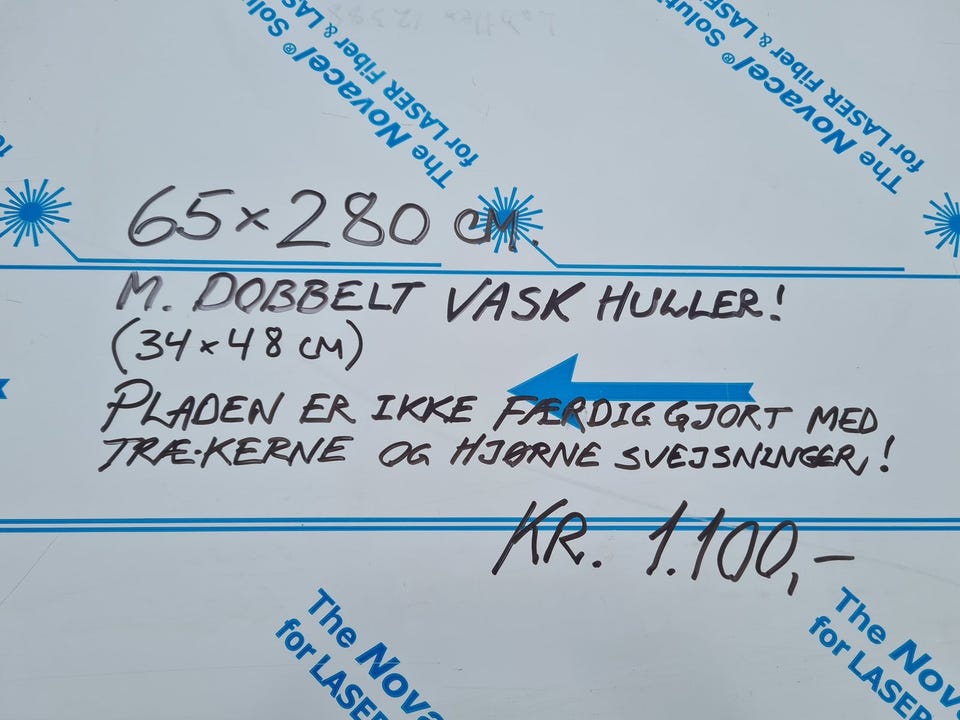 The Novacel® Solution
for LASER Fiber & LASER
The Novacel® Solution
for LASER Fiber & LASER
65×280 CM.
M. DOBBELT VASK HULLER!
(34×48 CM)
PLADEN ER IKKE FÆRDIGGJORT MED
TRÆ-KERNE OG HJØRNE SVEJSNINGER!
KR. 1.100,-
The Nova
for LASER
The Nova
for LASER